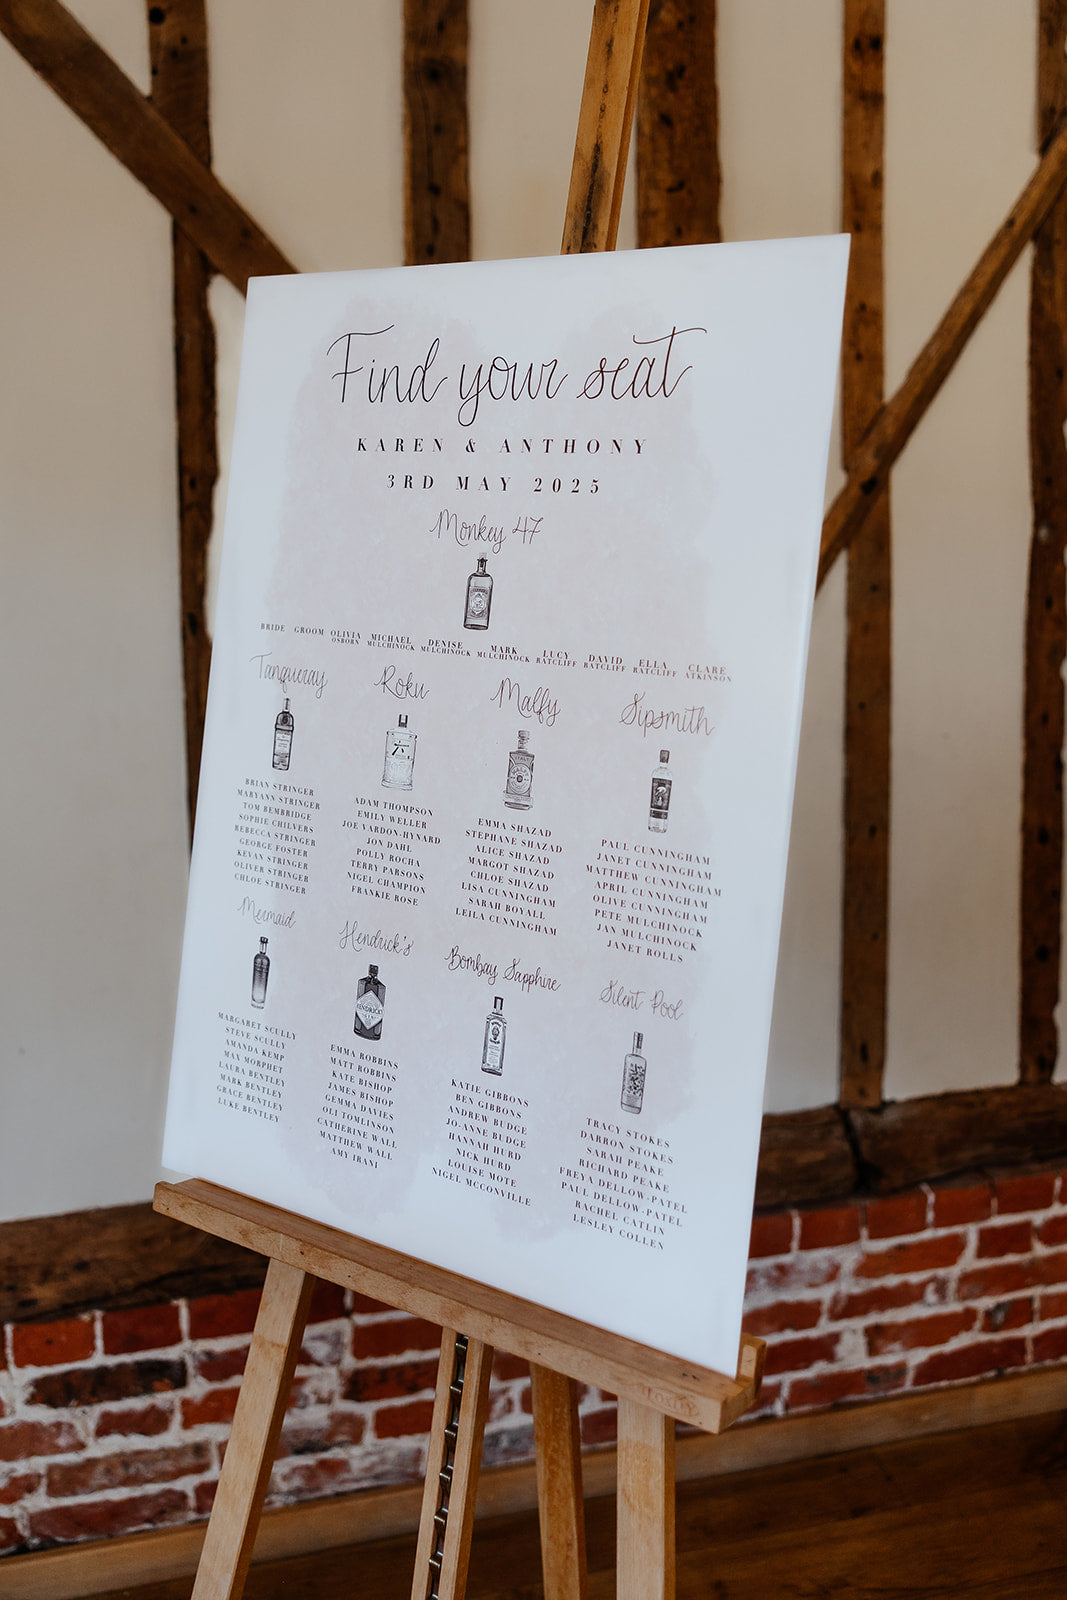 Find your seat
KAREN & ANTHONY
3RD MAY 2025
Monkey 47
BRIDE GROOM OLIVIA OSBORN MICHAEL MULCHINOCK DENISE MULCHINOCK MARK MULCHINOCK LUCY RATCLIFF DAVID RATCLIFF ELLA RATCLIFF CLARE ATKINSON
Tanqueray
BRIAN STRINGER
MARYANN STRINGER
TOM BEMBRIDGE
SOPHIE CHILVERS
REBECCA STRINGER
GEORGE FOSTER
KEVAN STRINGER
OLIVER STRINGER
CHLOE STRINGER
Roku
六
ADAM THOMPSON
EMILY WELLER
JOE VARDON-HYNARD
JON DAHL
POLLY ROCHA
TERRY PARSONS
NIGEL CHAMPION
FRANKIE ROSE
Malfy
EMMA SHAZAD
STEPHANE SHAZAD
ALICE SHAZAD
MARGOT SHAZAD
CHLOE SHAZAD
LISA CUNNINGHAM
SARAH BOYALL
LEILA CUNNINGHAM
Sipsmith
PAUL CUNNINGHAM
JANET CUNNINGHAM
MATTHEW CUNNINGHAM
APRIL CUNNINGHAM
OLIVE CUNNINGHAM
PETE MULCHINOCK
JAN MULCHINOCK
JANET ROLLS
Mermaid
MARGARET SCULLY
STEVE SCULLY
AMANDA KEMP
MAX MORPHET
LAURA BENTLEY
MARK BENTLEY
GRACE BENTLEY
LUKE BENTLEY
Hendrick's
HENDRICK'S
GIN
EMMA ROBBINS
MATT ROBBINS
KATE BISHOP
JAMES BISHOP
GEMMA DAVIES
OLI TOMLINSON
CATHERINE WALL
MATTHEW WALL
AMY IRANI
Bombay Sapphire
KATIE GIBBONS
BEN GIBBONS
ANDREW BUDGE
JO-ANNE BUDGE
HANNAH HURD
NICK HURD
LOUISE MOTE
NIGEL MCGONVILLE
Silent Pool
TRACY STOKES
DARRON STOKES
SARAH PEAKE
RICHARD PEAKE
FREYA DELLOW-PATEL
PAUL DELLOW-PATEL
RACHEL CATLIN
LESLEY COLLEN